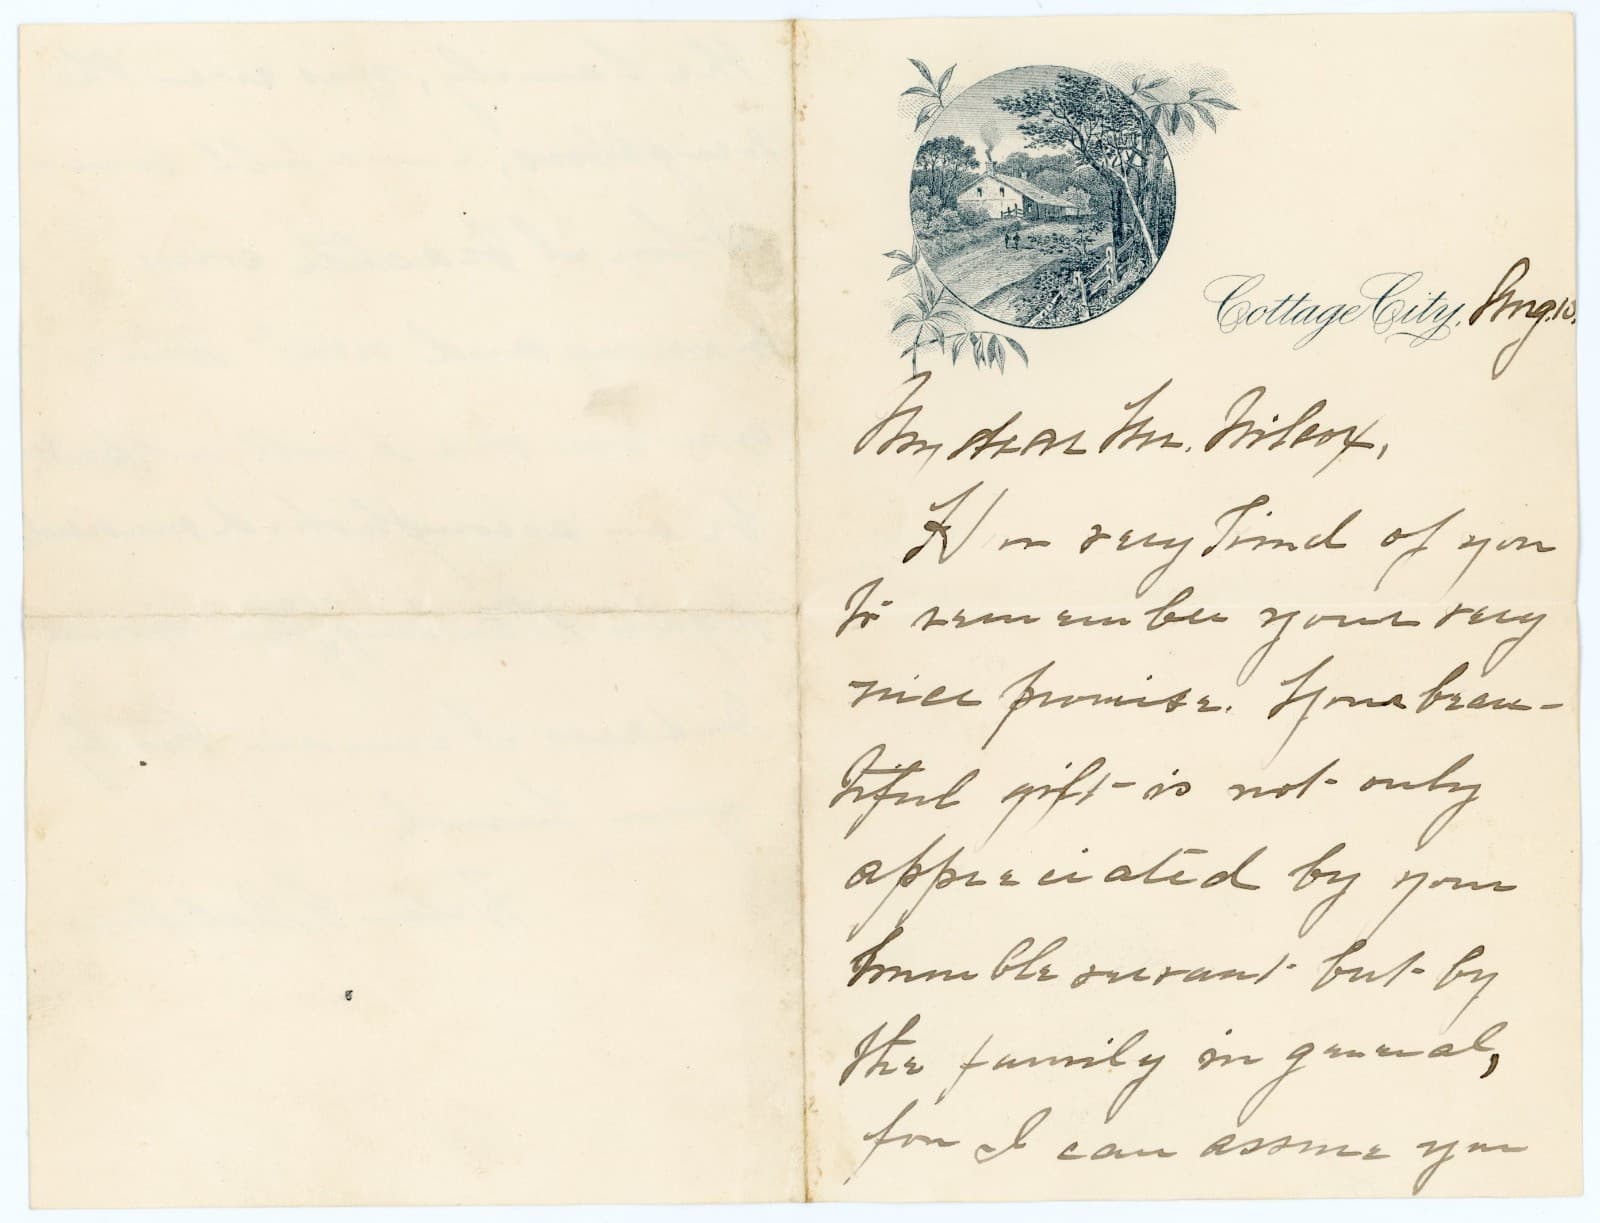 Cottage City, Aug. 10.
My dear Mr. Wilcox,
It is very kind of you
to remember your very
nice promise. Your beau-
tiful gift is not only
appreciated by your
humble servant but by
the family in general,
for I can assure you